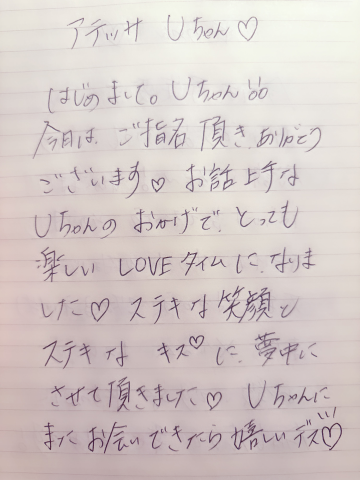 アテッサ Uちゃん♡
はじめました。Uちゃん
今日は、ご指名頂き、ありがとう
ございます♡ お話上手な
Uちゃんの おかげで、とっても
楽しい LOVEタイムに、なりま
した♡ ステキな笑顔と
ステキな キス♡に、夢中に
させて頂きました♡ Uちゃんに
また お会いできたら 嬉しいデス♡